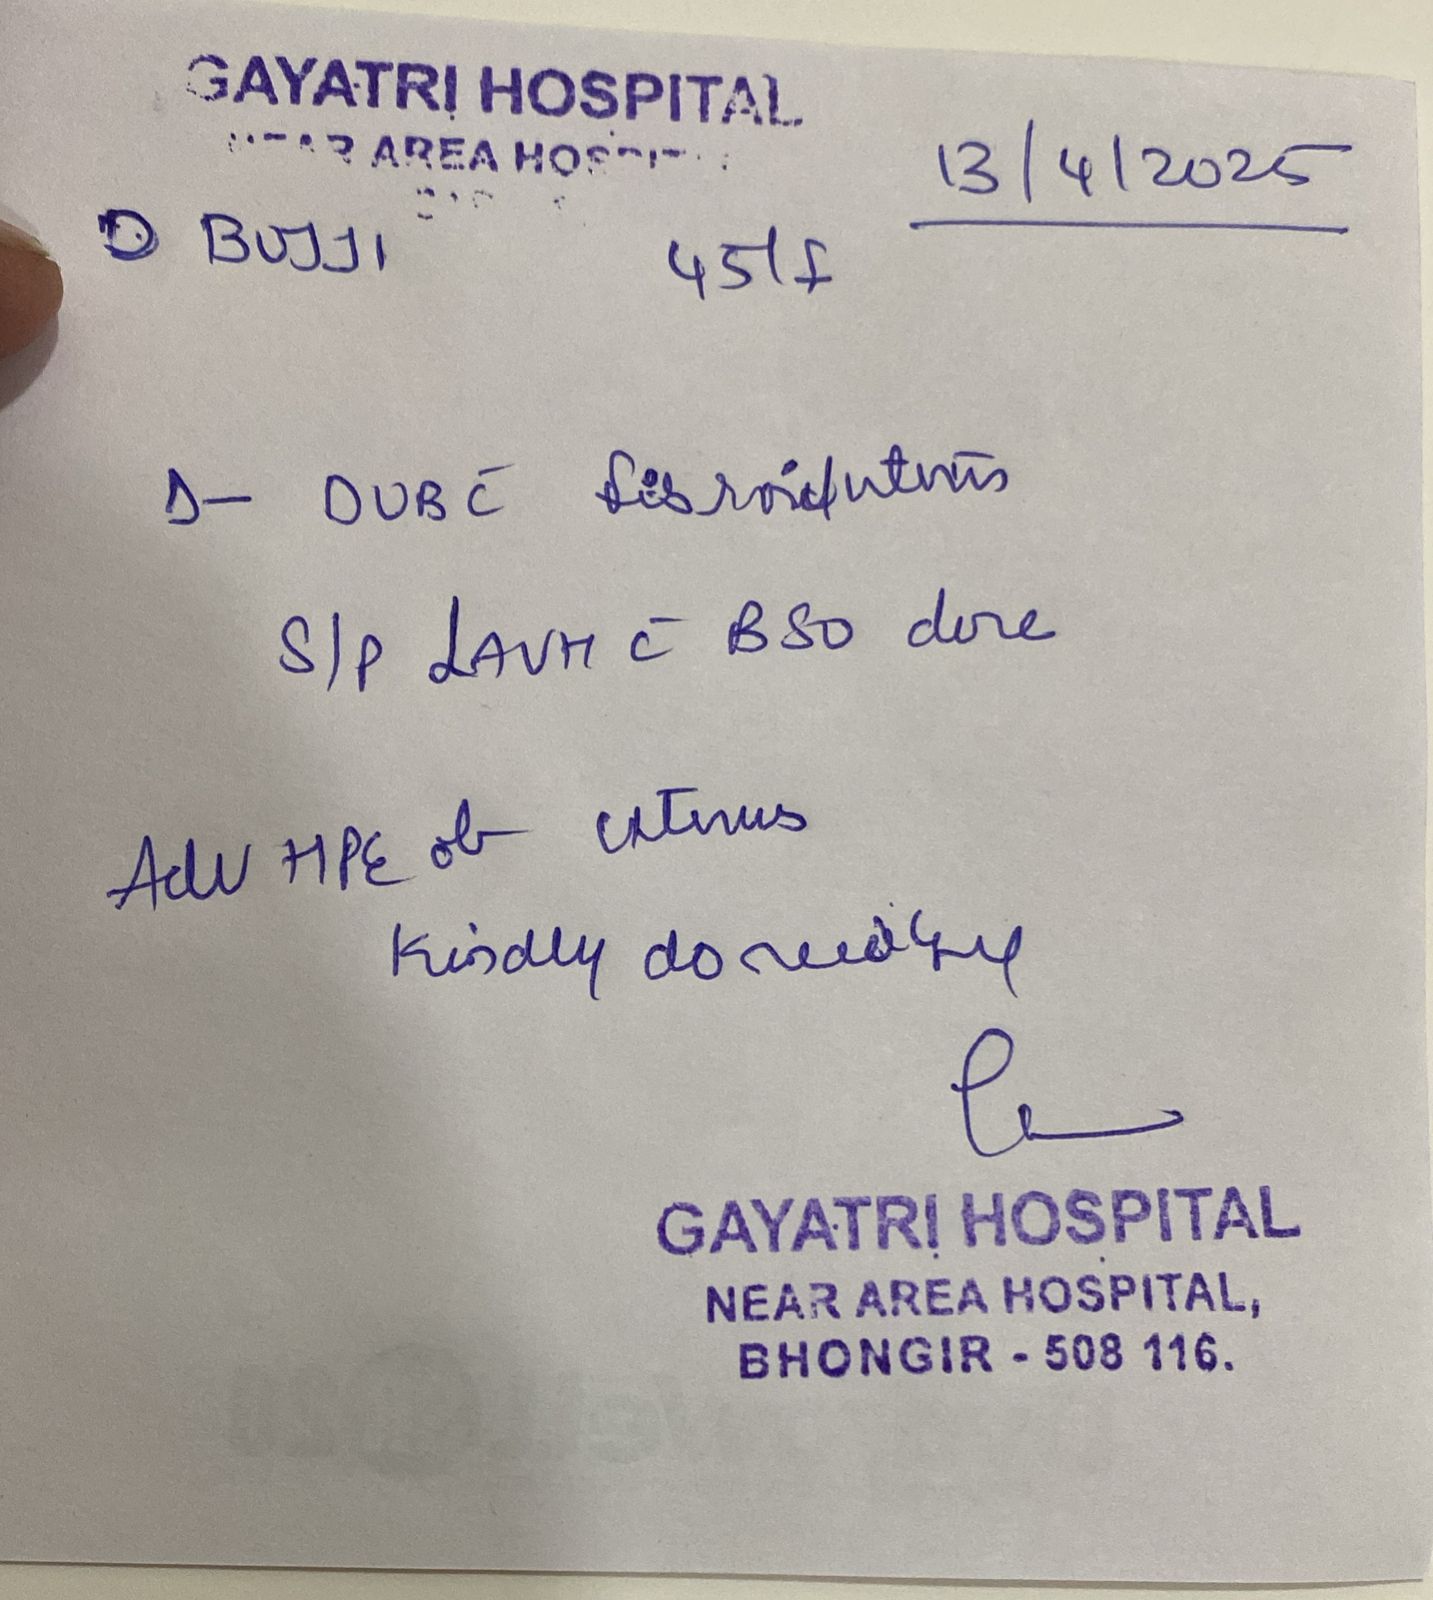 GAYATRI HOSPITAL
AREA
13/4/2025
D BUJJI 45/f
D- DUB c̄ fibroid uterus
S/P LAVH c̄ BSO done
Adv HPE of uterus
Kindly do needful
GAYATRI HOSPITAL
NEAR AREA HOSPITAL,
BHONGIR - 508 116.